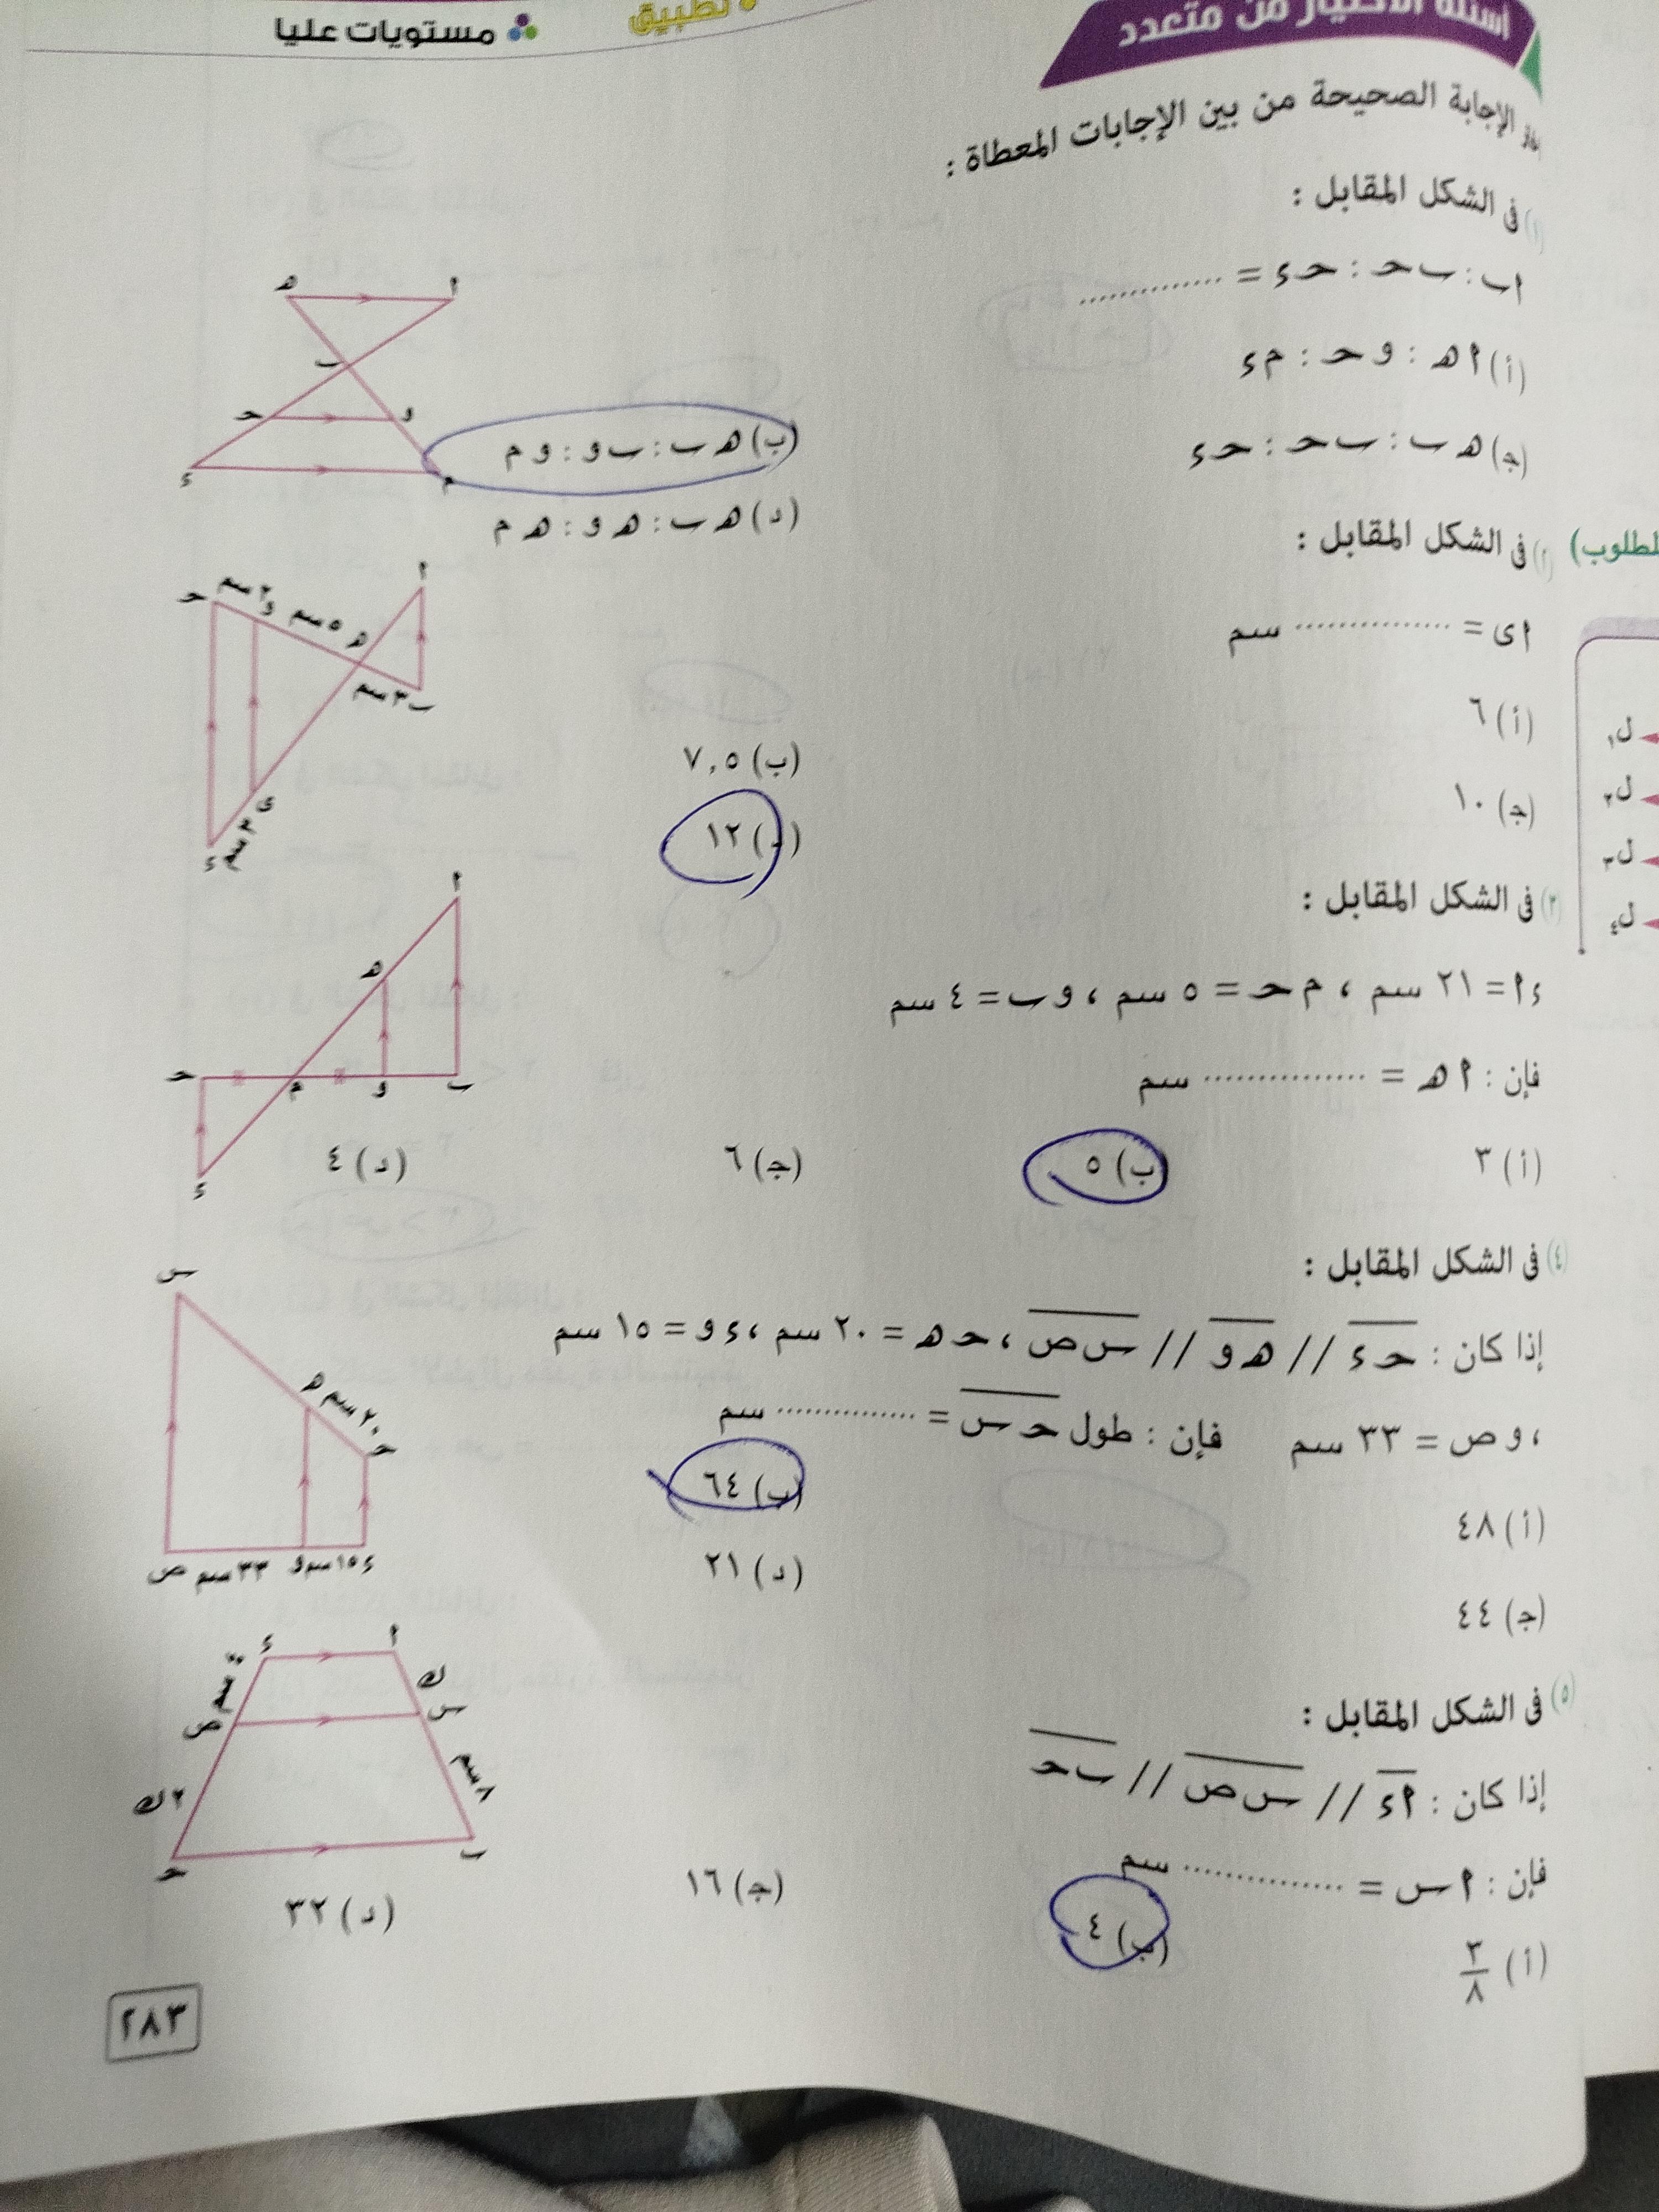 أسئلة الاختيار من متعدد
تطبيق
مستويات عليا
الإجابة الصحيحة من بين الإجابات المعطاة :
(١) فى الشكل المقابل :
اب : ب حـ : حـ ء = ..............
(أ) ا هـ : و حـ : م ء
(ب) هـ ب : ب و : و م
(جـ) هـ ب : ب حـ : حـ ء
(د) هـ ب : هـ و : هـ م
هـ ا ب حـ و ء م
(٢) فى الشكل المقابل :
ا ى = .............. سم
(أ) ٦
(ب) ٧,٥
(جـ) ١٠
(د) ١٢
حـ ٢ سم و ٥ سم هـ ا ٣ سم ب ى ٣ سم ء
(٣) فى الشكل المقابل :
ء ا = ٢١ سم ، م حـ = ٥ سم ، و ب = ٤ سم
فإن : ا هـ = .............. سم
(أ) ٣
(ب) ٥
(جـ) ٦
(د) ٤
ا هـ حـ م و ب ء
(٤) فى الشكل المقابل :
إذا كان : حـ ء // هـ و // س ص ، حـ هـ = ٢٠ سم ، ء و = ١٥ سم
، و ص = ٣٣ سم فإن : طول حـ س = .............. سم
(أ) ٤٨
(ب) ٦٤
(جـ) ٤٤
(د) ٢١
س هـ ٢٠ سم حـ ص ٣٣ سم و ١٥ سم ء
(٥) فى الشكل المقابل :
إذا كان : ا ء // س ص // ب حـ
فإن : ا س = .............. سم
(أ) ٣/٨
(ب) ٤
(جـ) ١٦
(د) ٣٢
ء ا ك سم ص س ٢ ك ٨ سم حـ ب
٢٨٣
لمطلوب)
ل١
ل٢
ل٣
ل٤